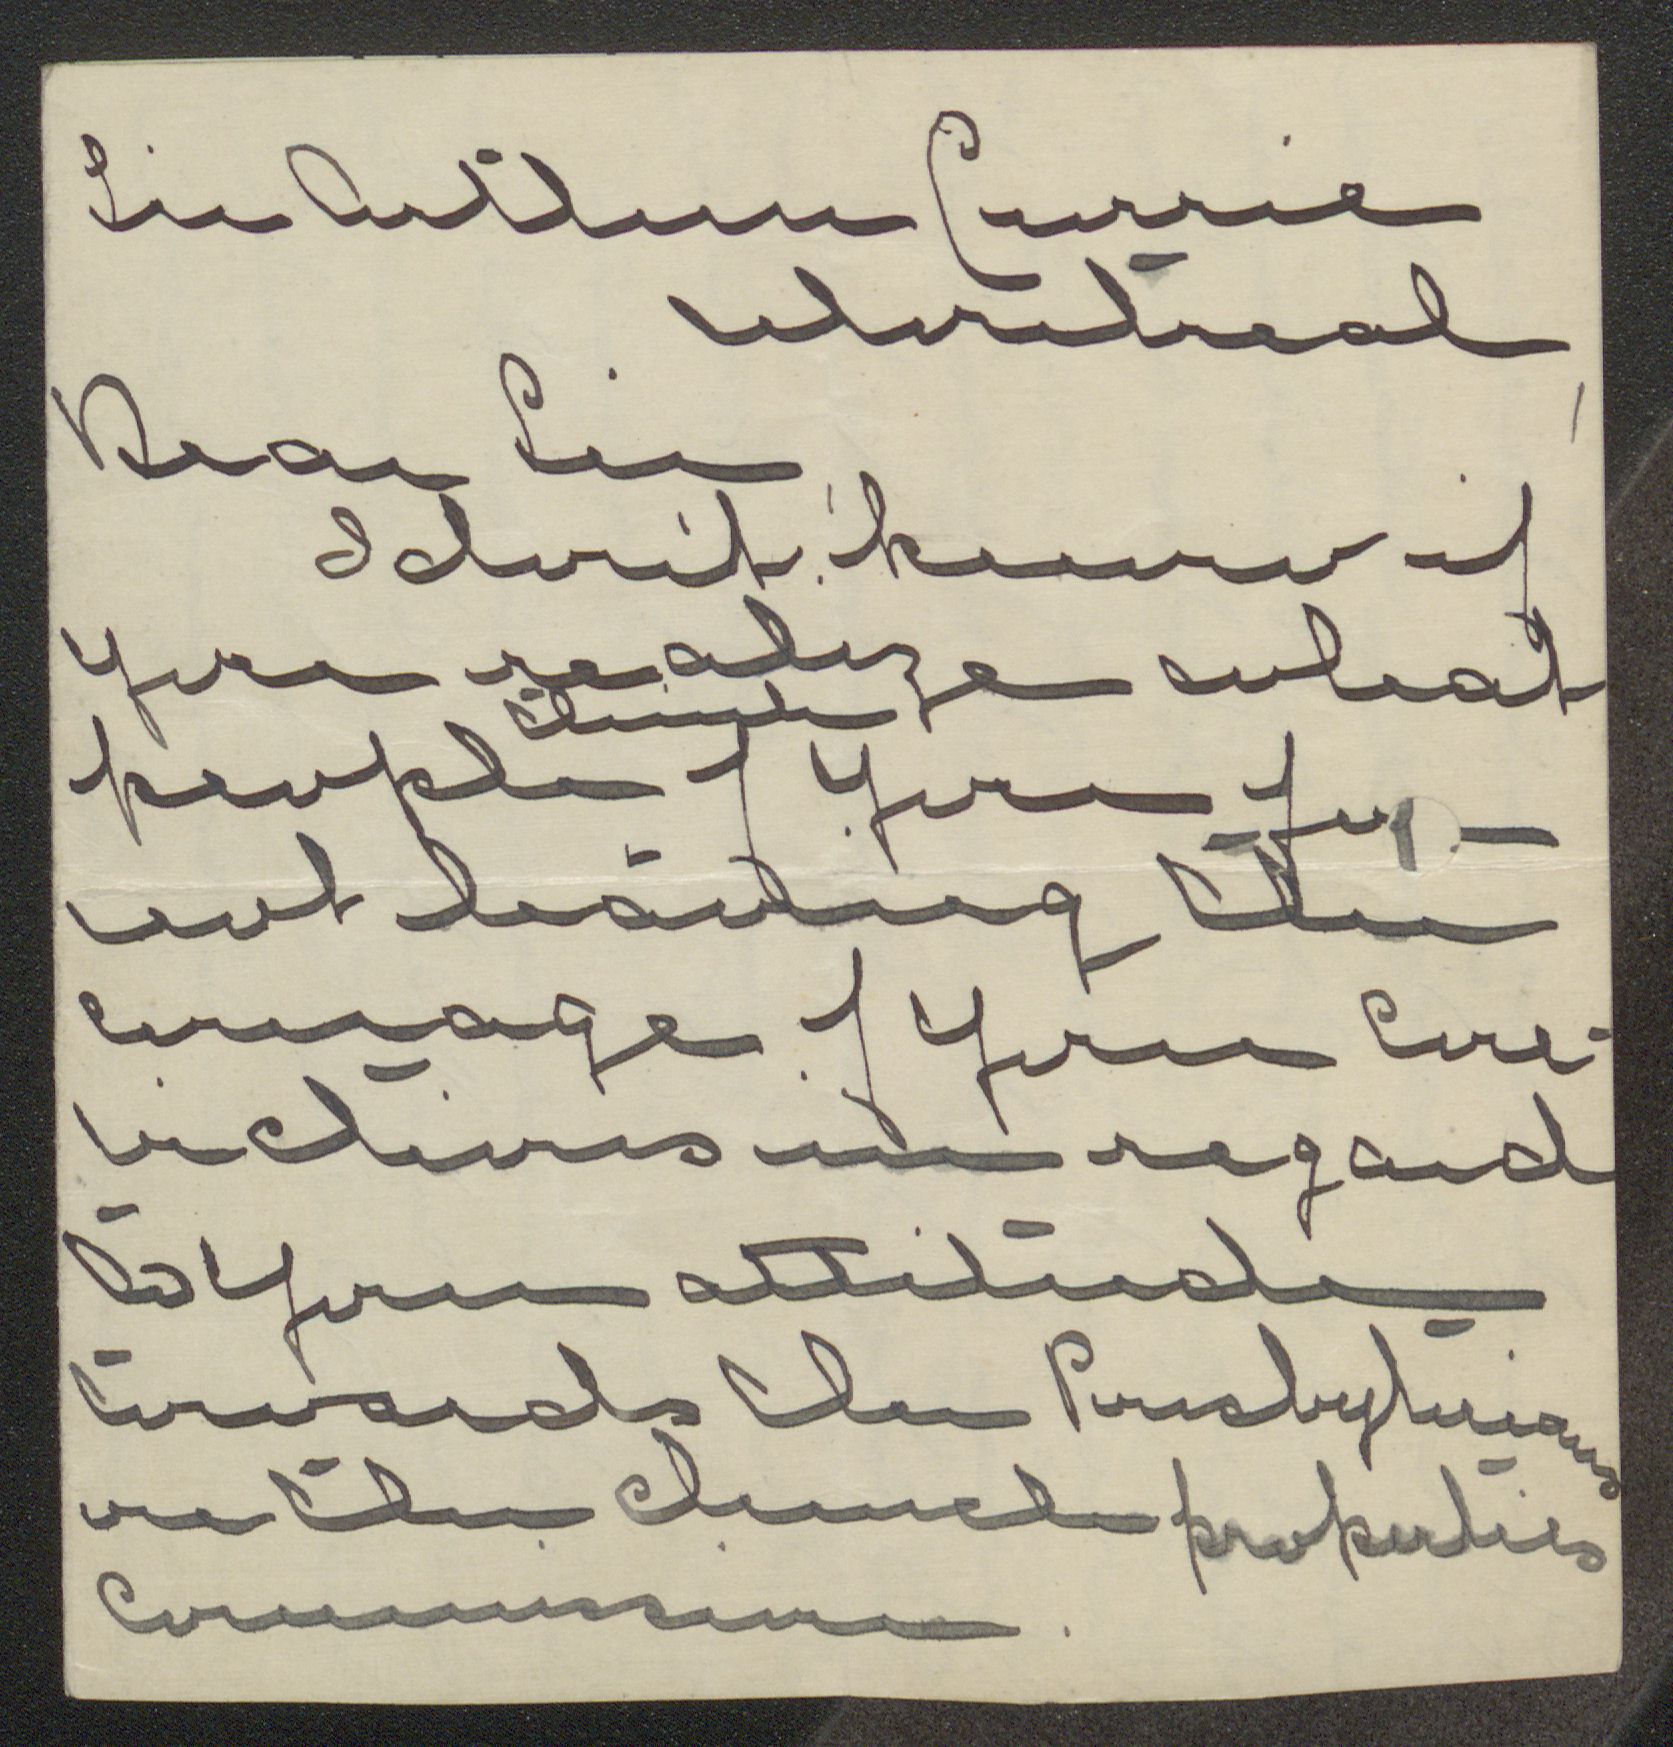 Sir Arthur Currie
Montreal
Dear Sir
I don't know if
you realize what
think
people of you for
not having the
courage of your con-
victions in regard
to your attitude
towards the Presbyterians
re the church properties
Commission.